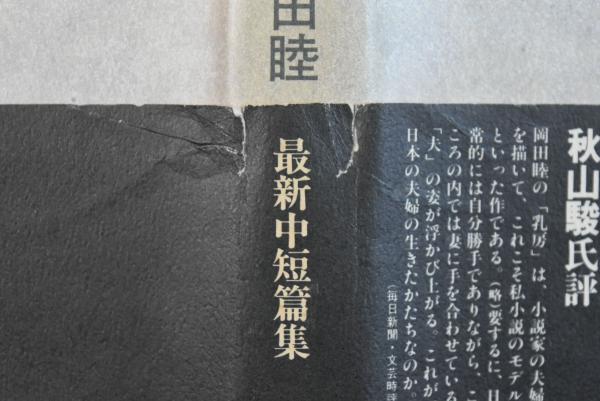 秋山駿氏評
岡田睦の「乳房」は、小説家の夫婦
を描いて、これこそ私小説のモデル
といった作である。(略)要するに、日
常的には自分勝手でありながら、こ
ころの内では妻に手を合わせている
「夫」の姿が浮かび上がる。これが
日本の夫婦の生きたかたちなのか。
(毎日新聞・文芸時評
田睦
最新中短篇集